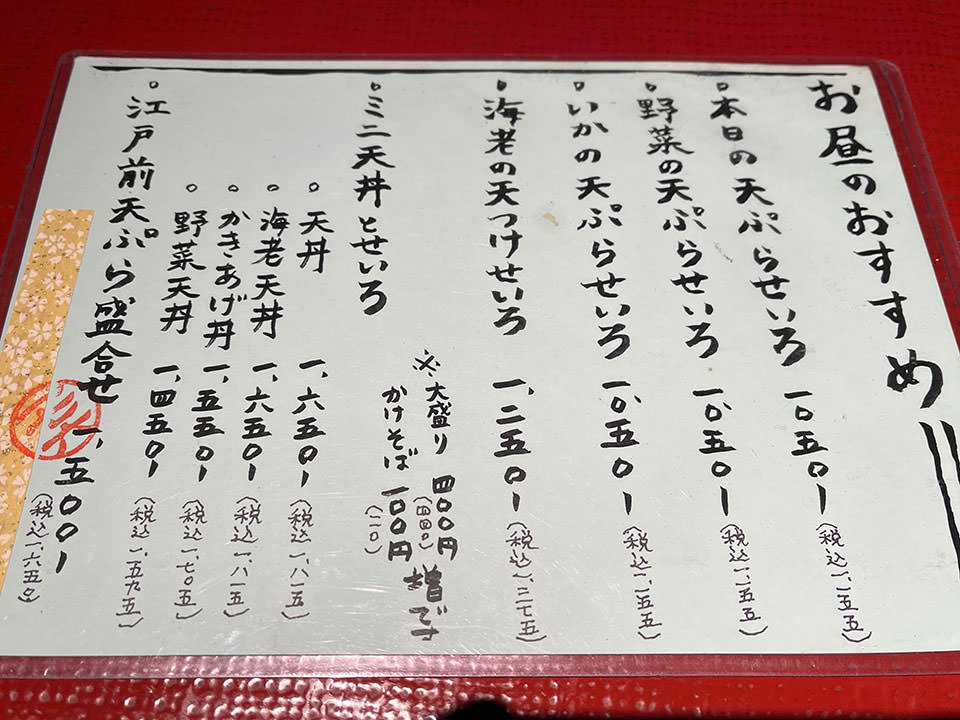 お昼のおすすめ
本日の天ぷらせいろ 一、〇五〇ー (税込一、一五五)
野菜の天ぷらせいろ 一、〇五〇ー (税込一、一五五)
いかの天ぷらせいろ 一、〇五〇ー (税込一、一五五)
海老の天つけせいろ 一、二五〇ー (税込一、二七五)
ミニ天丼とせいろ
※大盛り 四〇〇円 (四四〇)
かけそば 一〇〇円 (一一〇) 増です
天丼 一、六五〇ー (税込一、八一五)
海老天丼 一、六五〇ー (税込一、八一五)
かきあげ丼 一、五五〇ー (税込一、七〇五)
野菜天丼 一、四五〇ー (税込一、五九五)
江戸前天ぷら盛合せ 一、五〇〇ー (税込一、六五〇)